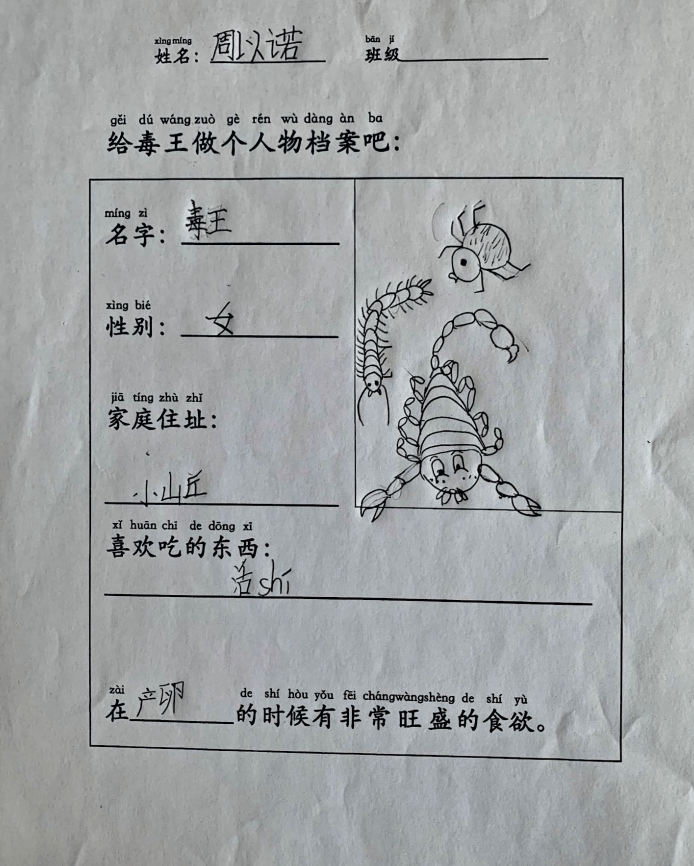 xìng míng bān jí
姓名：周以诺 班级
gěi dú wáng zuò gè rén wù dàng àn ba
给毒王做个人物档案吧：
míng zì
名字：毒王
xìng bié
性别：女
jiā tíng zhù zhǐ
家庭住址：
小山丘
xǐ huān chī de dōng xī
喜欢吃的东西：
活shí
zài de shí hòu yǒu fēi cháng wàng shèng de shí yù
在产卵的时候有非常旺盛的食欲。